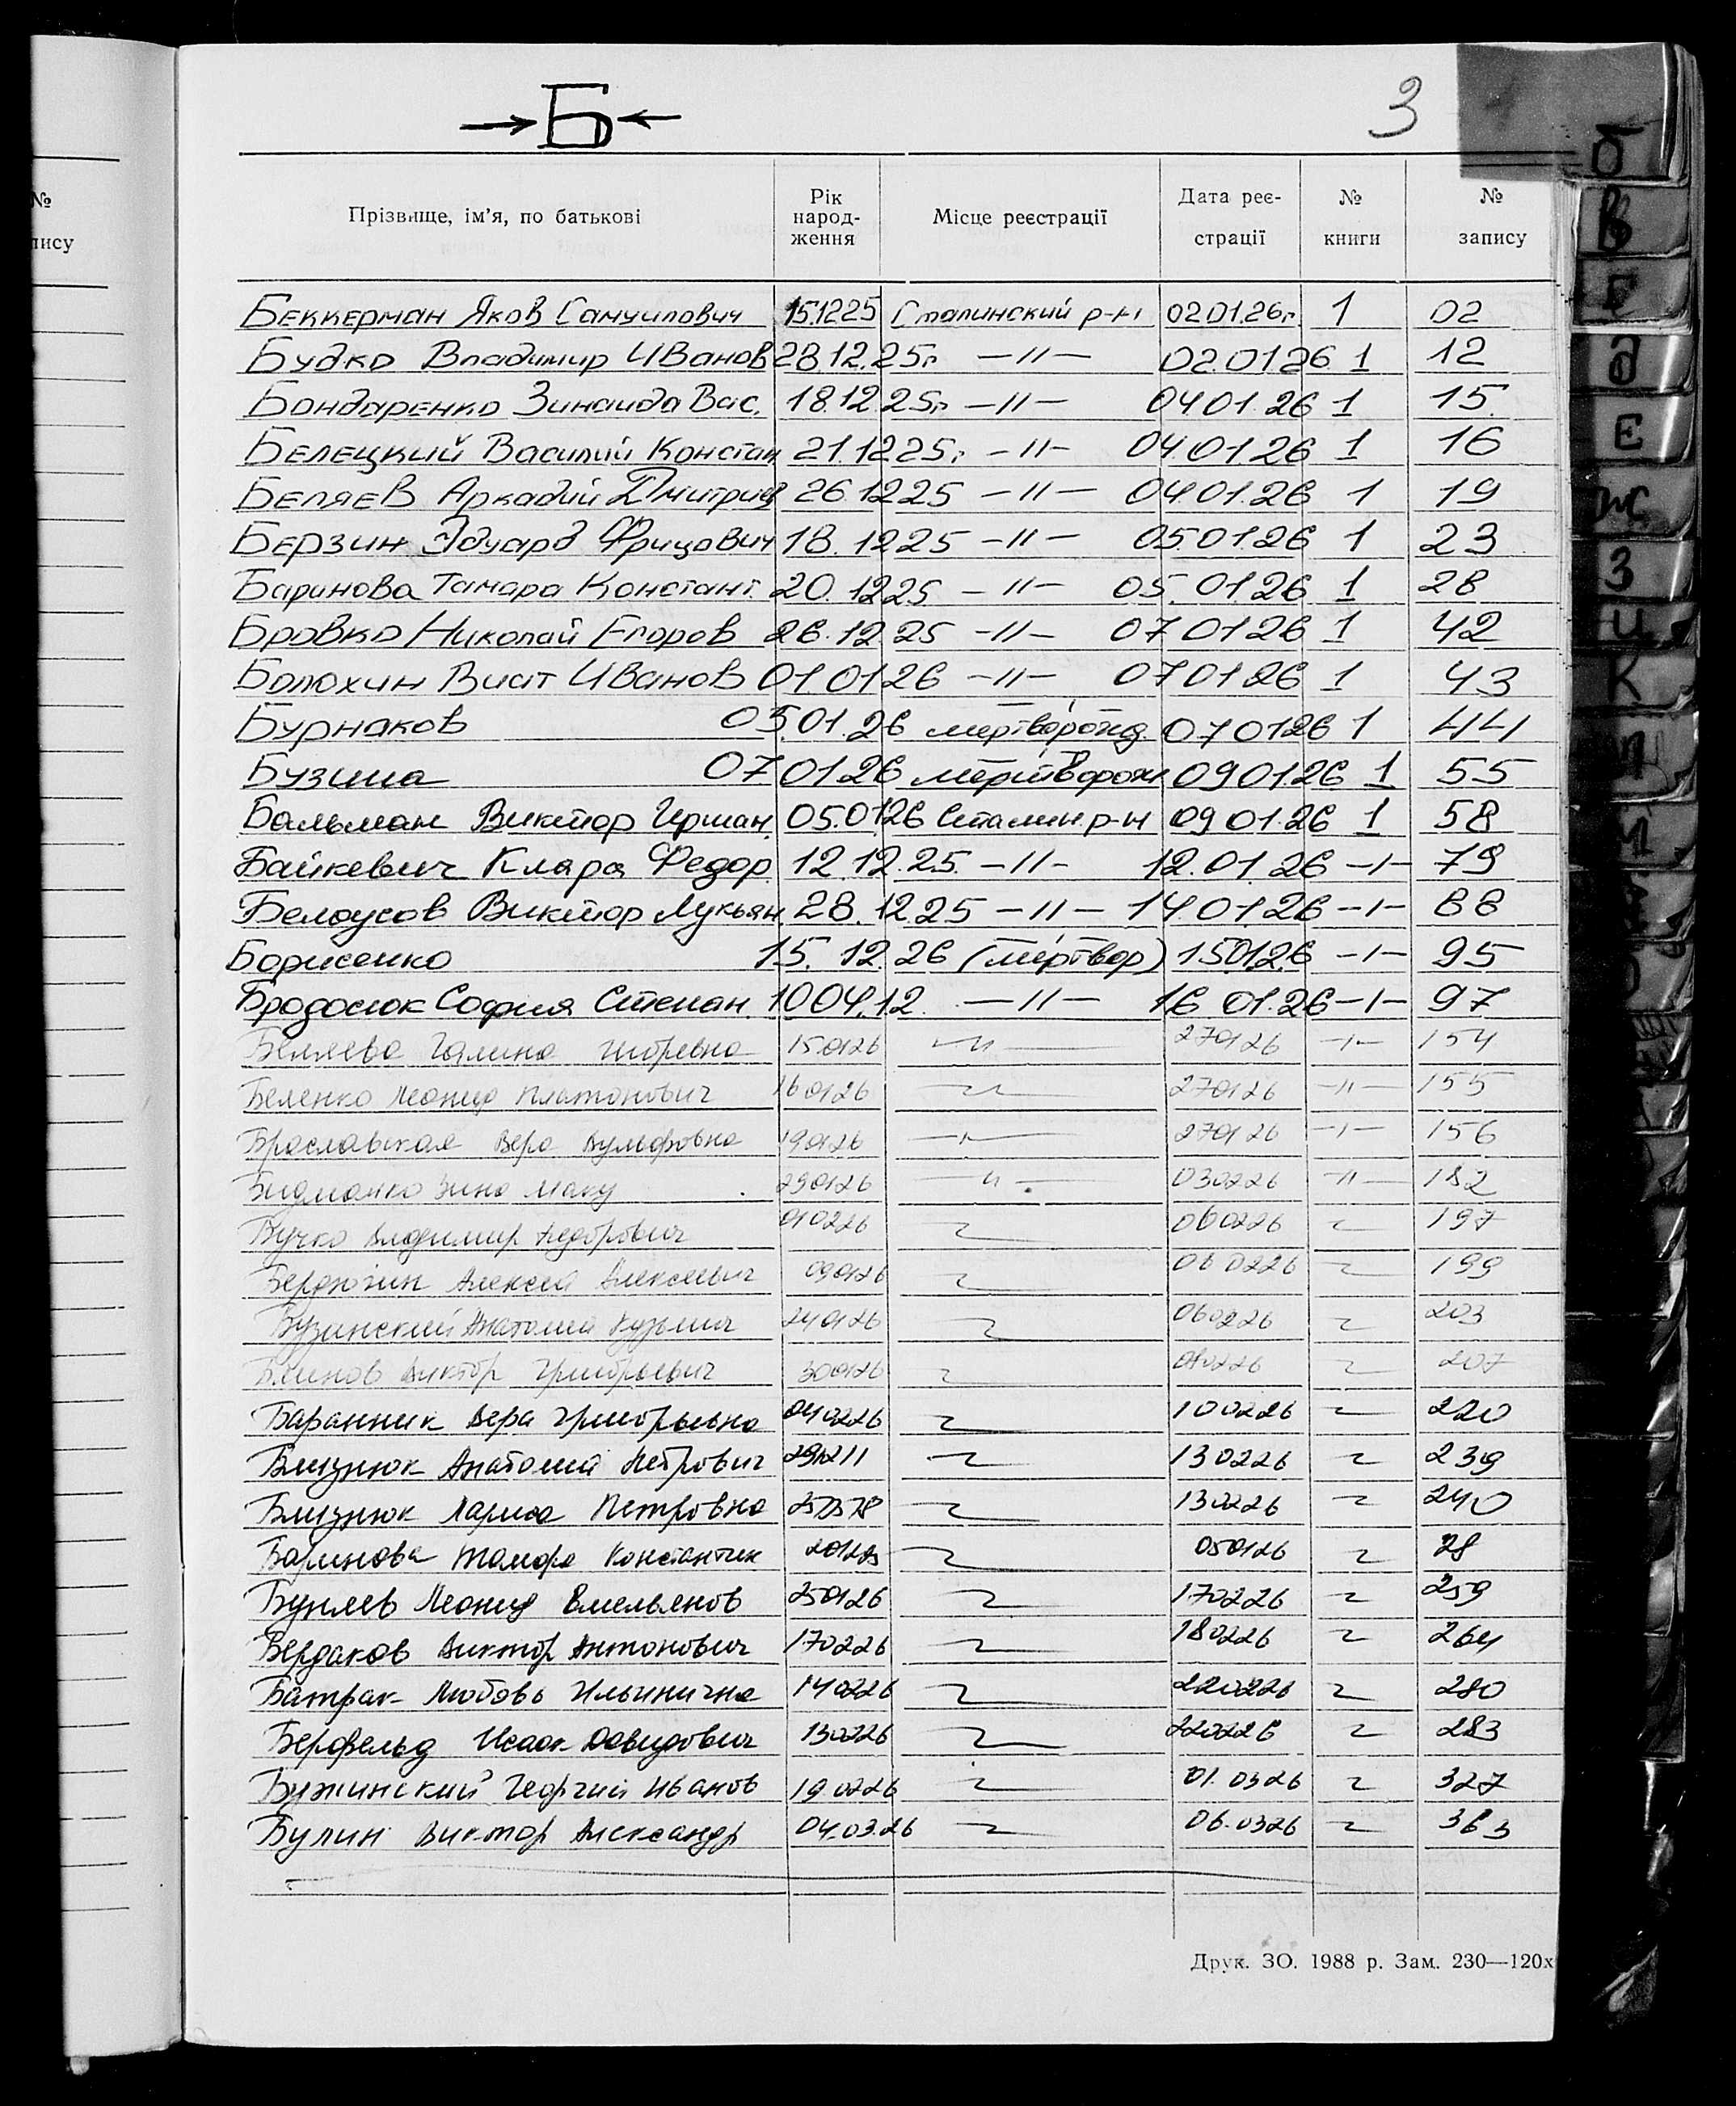 →Б← 3
№
пису
Прізвище, ім'я, по батькові Рік народ-ження Місце реєстрації Дата реє-страції № книги № запису
Беккерман Яков Самуилович 15.12.25 Сталинский р-н 02.01.26г. 1 02
Будко Владимир Иванов 28.12.25г. —〃— 02.01.26 1 12
Бондаренко Зинаида Вас. 18.12.25г. —〃— 04.01.26 1 15
Белецкий Василий Констан 21.12.25г. —〃— 04.01.26 1 16
Беляев Аркадий Дмитриев 26.12.25 —〃— 04.01.26 1 19
Берзин Эдуард Фрицович 18.12.25 —〃— 05.01.26 1 23
Баринова Тамара Констант. 20.12.25 —〃— 05.01.26 1 28
Бровко Николай Егоров 26.12.25 —〃— 07.01.26 1 42
Болохин Виат Иванов 01.01.26 —〃— 07.01.26 1 43
Бурнаков 05.01.26 07.01.26 1 44
Бузина 07.01.26 мертворож 09.01.26 1 55
Бальман Виктор Герман. 05.01.26 Сталин. р-н 09.01.26 1 58
Байкевич Клара Федор. 12.12.25 —〃— 12.01.26 —〃— 79
Белоусов Виктор Лукьян. 28.12.25 —〃— 14.01.26 —〃— 88
Борисенко 15.12.26 (мертвор) 15.01.26 —〃— 95
София Степан. 10.04.12 —〃— 16.01.26 —〃— 97
Беляева Галина Игоревна 15.01.26 —〃— 27.01.26 —〃— 154
Беленко Леонид Платонович 16.01.26 —〃— 27.01.26 —〃— 155
Браславская Вера Вульфовна 19.01.26 —〃— 27.01.26 —〃— 156
29.01.26 —〃— 03.02.26 —〃— 182
Бучко Владимир Федорович 01.02.26 —〃— 06.02.26 —〃— 197
Алексей Алексеевич 09.01.26 —〃— 06.02.26 —〃— 199
Бузинский Анатолий Кузьмич 24.01.26 —〃— 06.02.26 —〃— 203
Блинов Виктор Григорьевич 30.01.26 —〃— —〃— 207
Баранник Вера Григорьевна 04.02.26 —〃— 10.02.26 —〃— 220
Близнюк Анатолий Петрович —〃— 13.02.26 —〃— 239
Близнюк Лариса Петровна —〃— 13.02.26 —〃— 240
Баринова Тамара Константин 20.12.25 —〃— 05.01.26 —〃— 28
Леонид Емельянов 25.01.26 —〃— 17.02.26 —〃— 259
Бердаков Виктор Антонович 17.02.26 —〃— 18.02.26 —〃— 264
Батрак Любовь Ильинична 14.02.26 —〃— 22.02.26 —〃— 280
Берфельд Исаак Давидович 13.02.26 —〃— 22.02.26 —〃— 283
Бужинский Георгий Иванов 19.02.26 —〃— 01.03.26 —〃— 327
Булин Виктор Александр 04.03.26 —〃— 06.03.26 —〃— 363
Друк. ЗО. 1988 р. Зам. 230—120х
б
В
Г
д
Е
Ж
З
И
К
Л
М